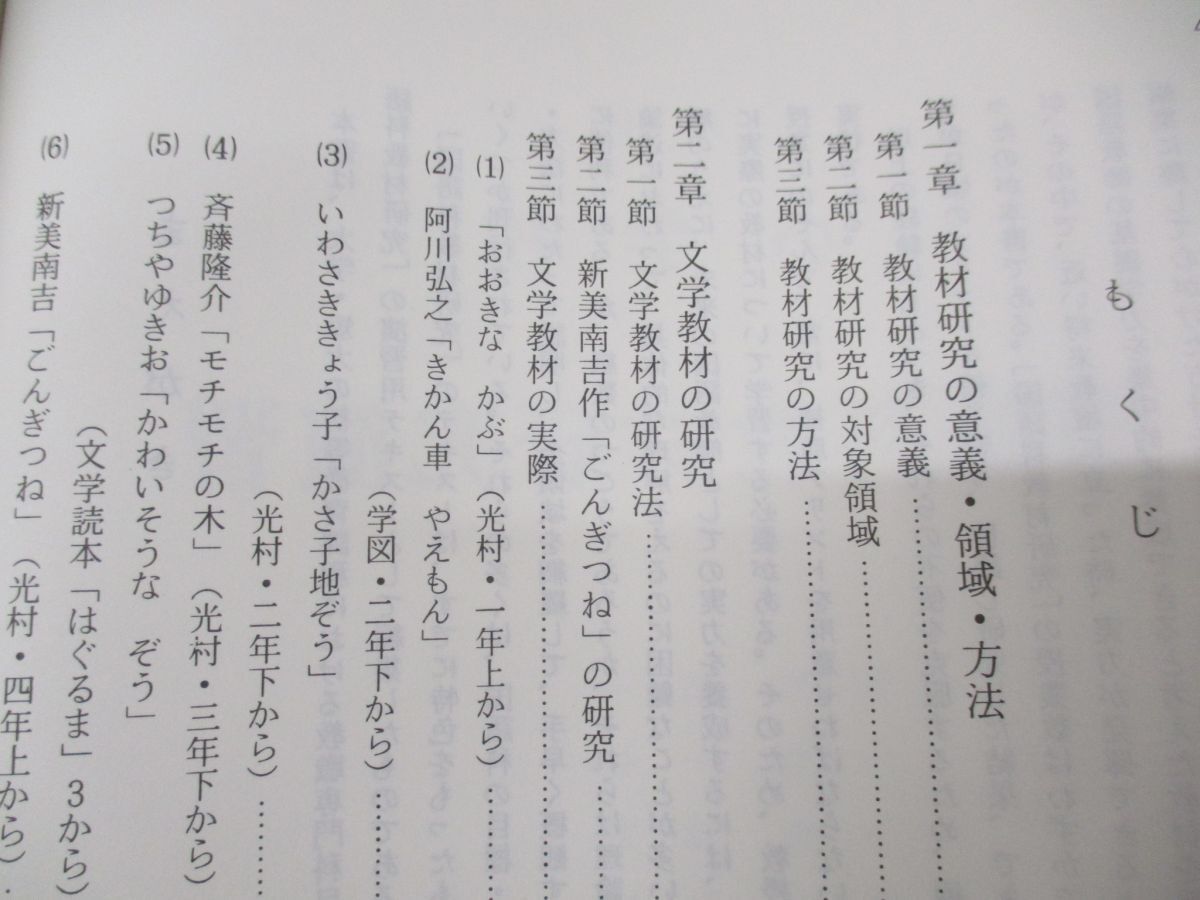 もくじ
第一章　教材研究の意義・領域・方法………
第一節　教材研究の意義………
第二節　教材研究の対象領域………
第三節　教材研究の方法………
第二章　文学教材の研究
第一節　文学教材の研究法………
第二節　新美南吉作「ごんぎつね」の研究………
第三節　文学教材の実際………
⑴　「おおきな　かぶ」（光村・一年上から）………
⑵　阿川弘之「きかん車　やえもん」
（学図・二年下から）………
⑶　いわさききょう子「かさ子地ぞう」
（光村・二年下から）………
⑷　斉藤隆介「モチモチの木」（光村・三年下から）
⑸　つちやゆきお「かわいそうな　ぞう」
（文学読本「はぐるま」3から）
⑹　新美南吉「ごんぎつね」（光村・四年上から）…